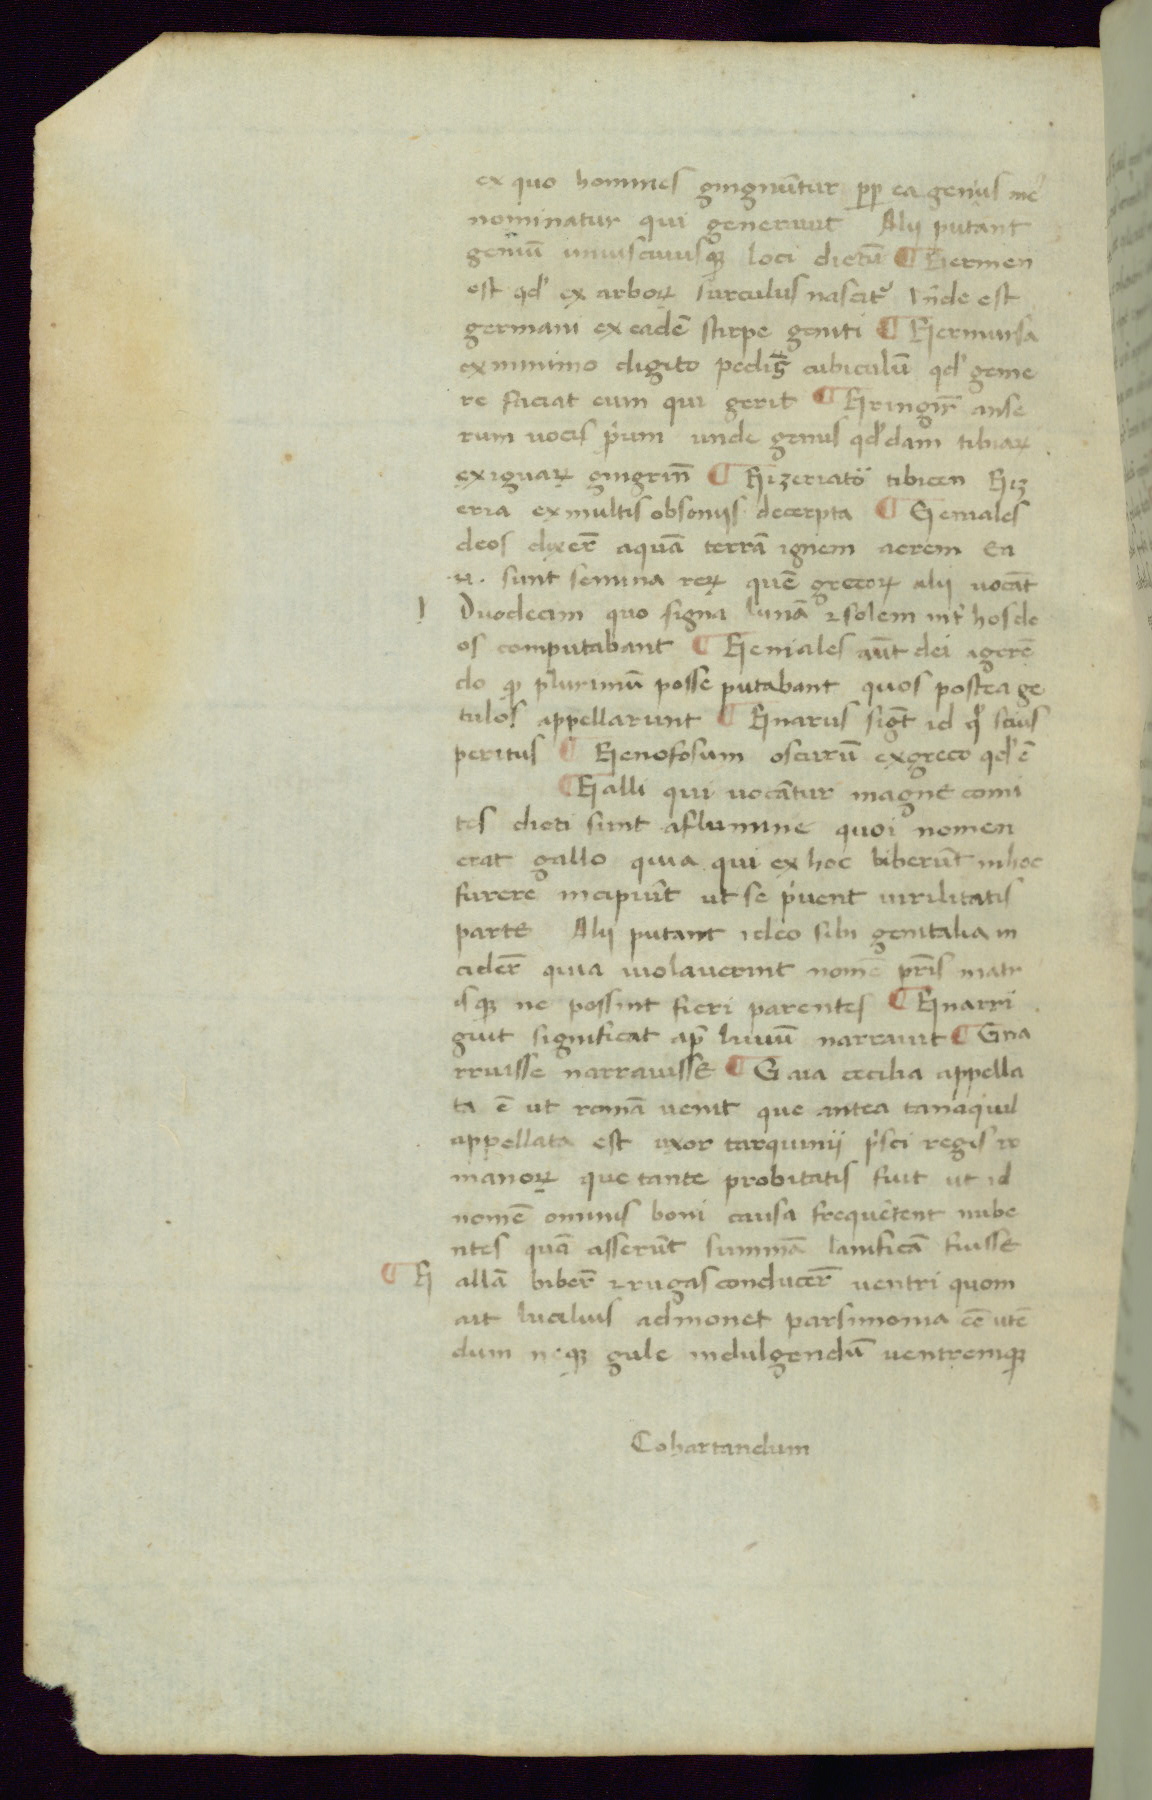 ex quo homines gingnūtur ꝓp ea genius me᷒
nominatur qui generauit Alij putant
geniū uniuscuiusqꝫ loci dictū ¶ Germen
est qd' ex arboꝝ surculus nascit᷒ Vn̄de est
germani ex eadē stirpe geniti ¶ Germuusa
ex minimo digito pedis cubiculū qd' geme
re faciat eum qui gerit ¶ Gringir̄ anse
rum uocis p̄ium unde genus qd'dam tibiaꝝ
exiguaꝝ gingrin̄ ¶ Gizeriatō tibicen Giz
eria ex multis obsonijs decerpta ¶ Geniales
deos dixer̄ aquā terrā ignem aerem Ea
.n. sunt semina reꝝ quē grecoꝝ alij uocāt
Duodecim quo signa lunā ⁊ solem int᷒ hos de
os computabant ¶ Geniales aūt dei agerē
do qꝫ plurimū posse putabant quos postea ge
tulos appellarunt ¶ Gnarus sigt̄ id qd' scius
peritus ¶ Genofosum oscurū ex greco qd' ē
¶ Galli qui uocātur magne comi
tes dicti sunt a flumine quoi nomen
erat gallo quia qui ex hoc biberūt in hoc
furere incipiūt ut se p̄uent uirilitatis
parte Alij putant ideo sibi genitalia in
cider̄ quia uiolauerint nomē pr̄is matr
isqꝫ ne possint fieri parentes ¶ Gnarri
guit significat ap̄ liuiū narrauit ¶ Gna
rruisse narrauisse ¶ Gaia cecilia appella
ta ē ut romā uenit que antea tanaquil
appellata est uxor tarquinij p̄sci regis ro
manoꝝ que tante probitatis fuit ut id
nomē ominis boni causa frequētent nube
ntes quā asserūt summā lanificā fuisse
¶ G allā biber̄ ⁊ rugas conducer̄ uentri quom
ait lucilius admonet parsimonia eē utē
dum neqꝫ gule indulgendū uentremqꝫ
Cohartandum